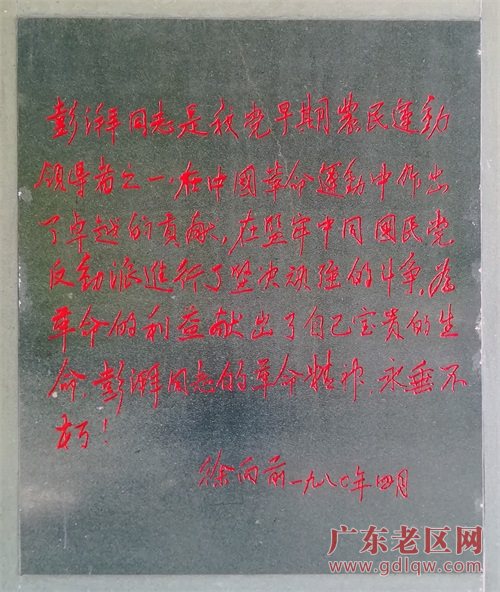 彭湃同志是我党早期農民運動
领导者之一,在中國革命運動中作出
了卓越的貢献,在坚牢中同國民党
反動派進行了坚决顽强的斗争,为
革命的利益献出了自己宝贵的生
命,彭湃同志的革命精神,永垂不
朽!
徐向前一九八〇年四月
广东老区网
www.gdlqw.com